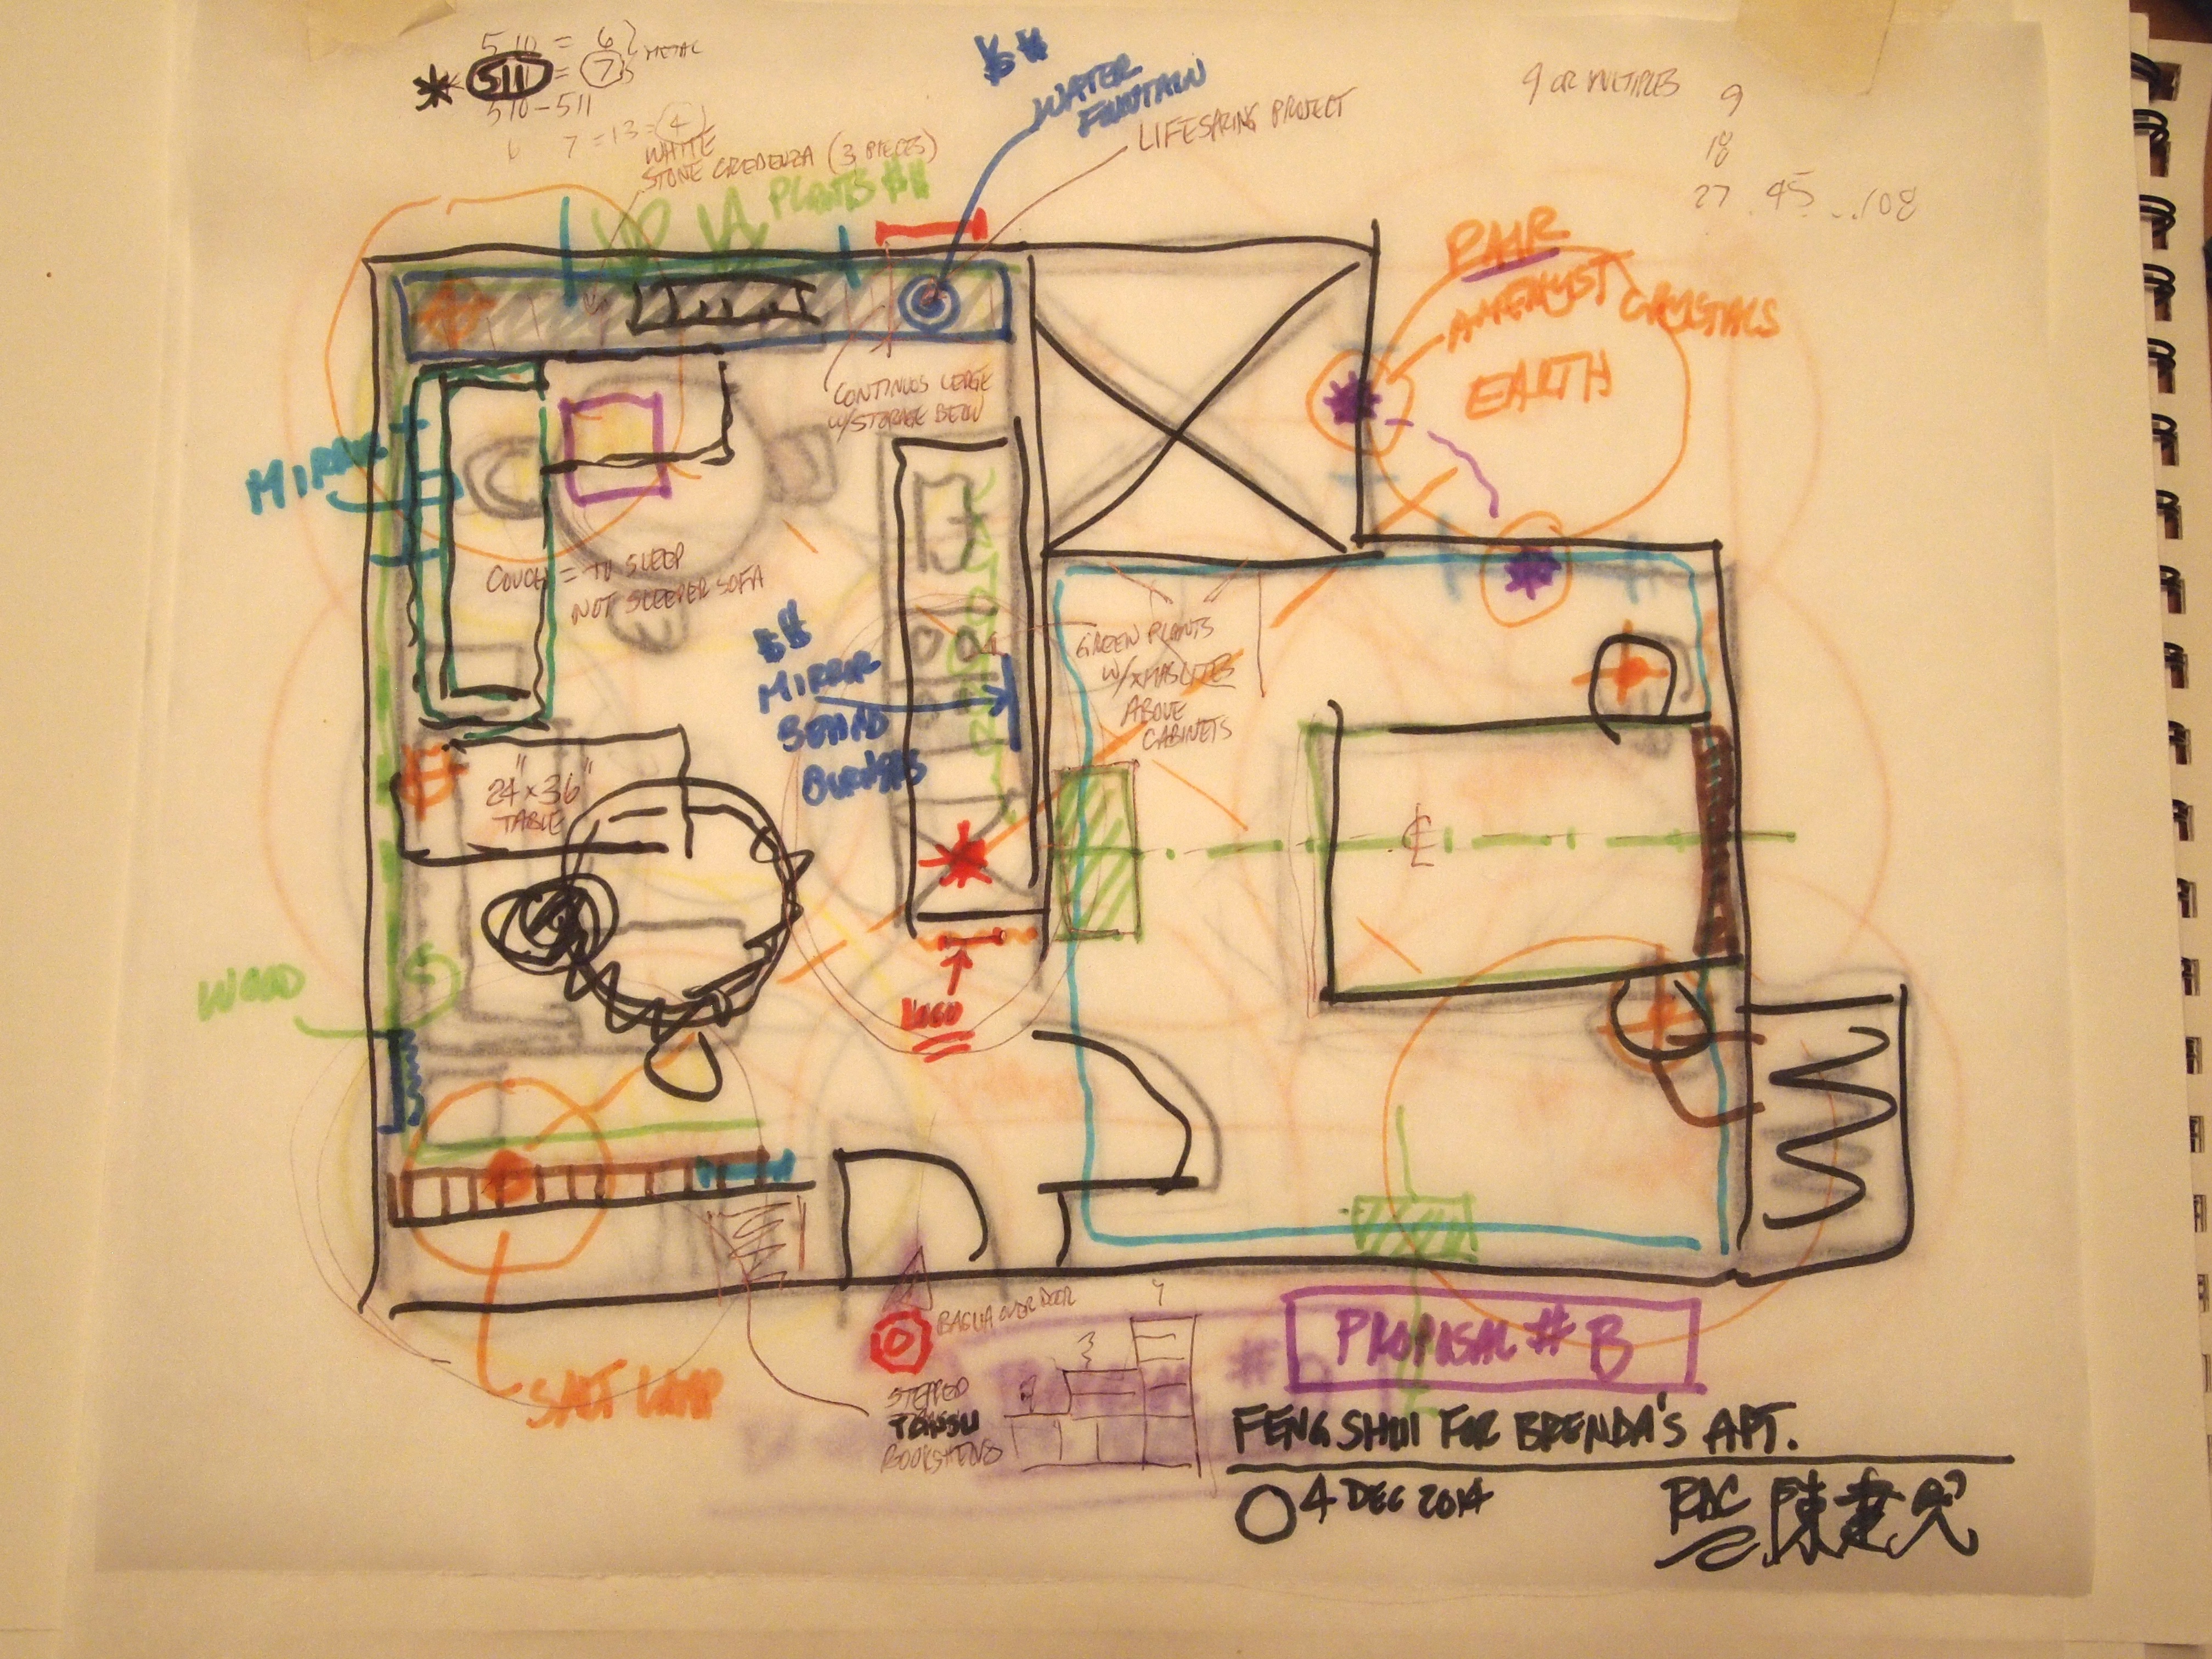 510 = 6
511 = 7
METAL
510-511
7 = 13 = 4
WHITE
STONE CREDENZA (3 PIECES)
PLANTS
WATER
FOUNTAIN
LIFESAVING PROJECT
9 OR MULTIPLES
9
18
27 . 45 ...108
PAIR
AMETHYST CRYSTALS
EARTH
MIRROR
CONTINUOS LEDGE
W/STORAGE BELOW
COUCH = TO SLEEP
NOT SLEEPER SOFA
MIRROR
BEHIND
BURNERS
GREEN PLANTS
W/XMAS LITES
ABOVE
CABINETS
24" x 36"
TABLE
WOOD
SALT LAMP
BAGUA OVER DOOR
STEPPED
TANSU
BOOKSHELVES
PROPOSAL # B
FENG SHUI FOR BRENDA'S APT.
04 DEC 2014